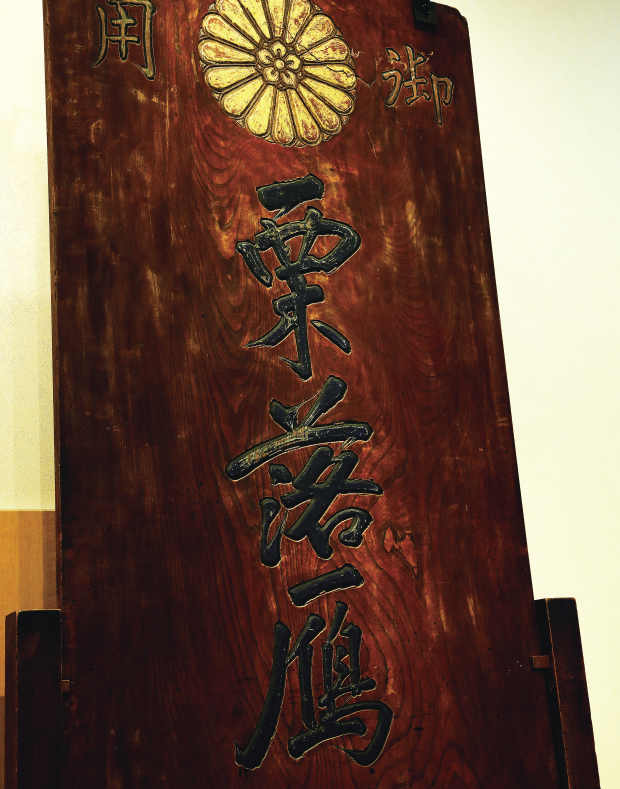 御用
栗落鴈